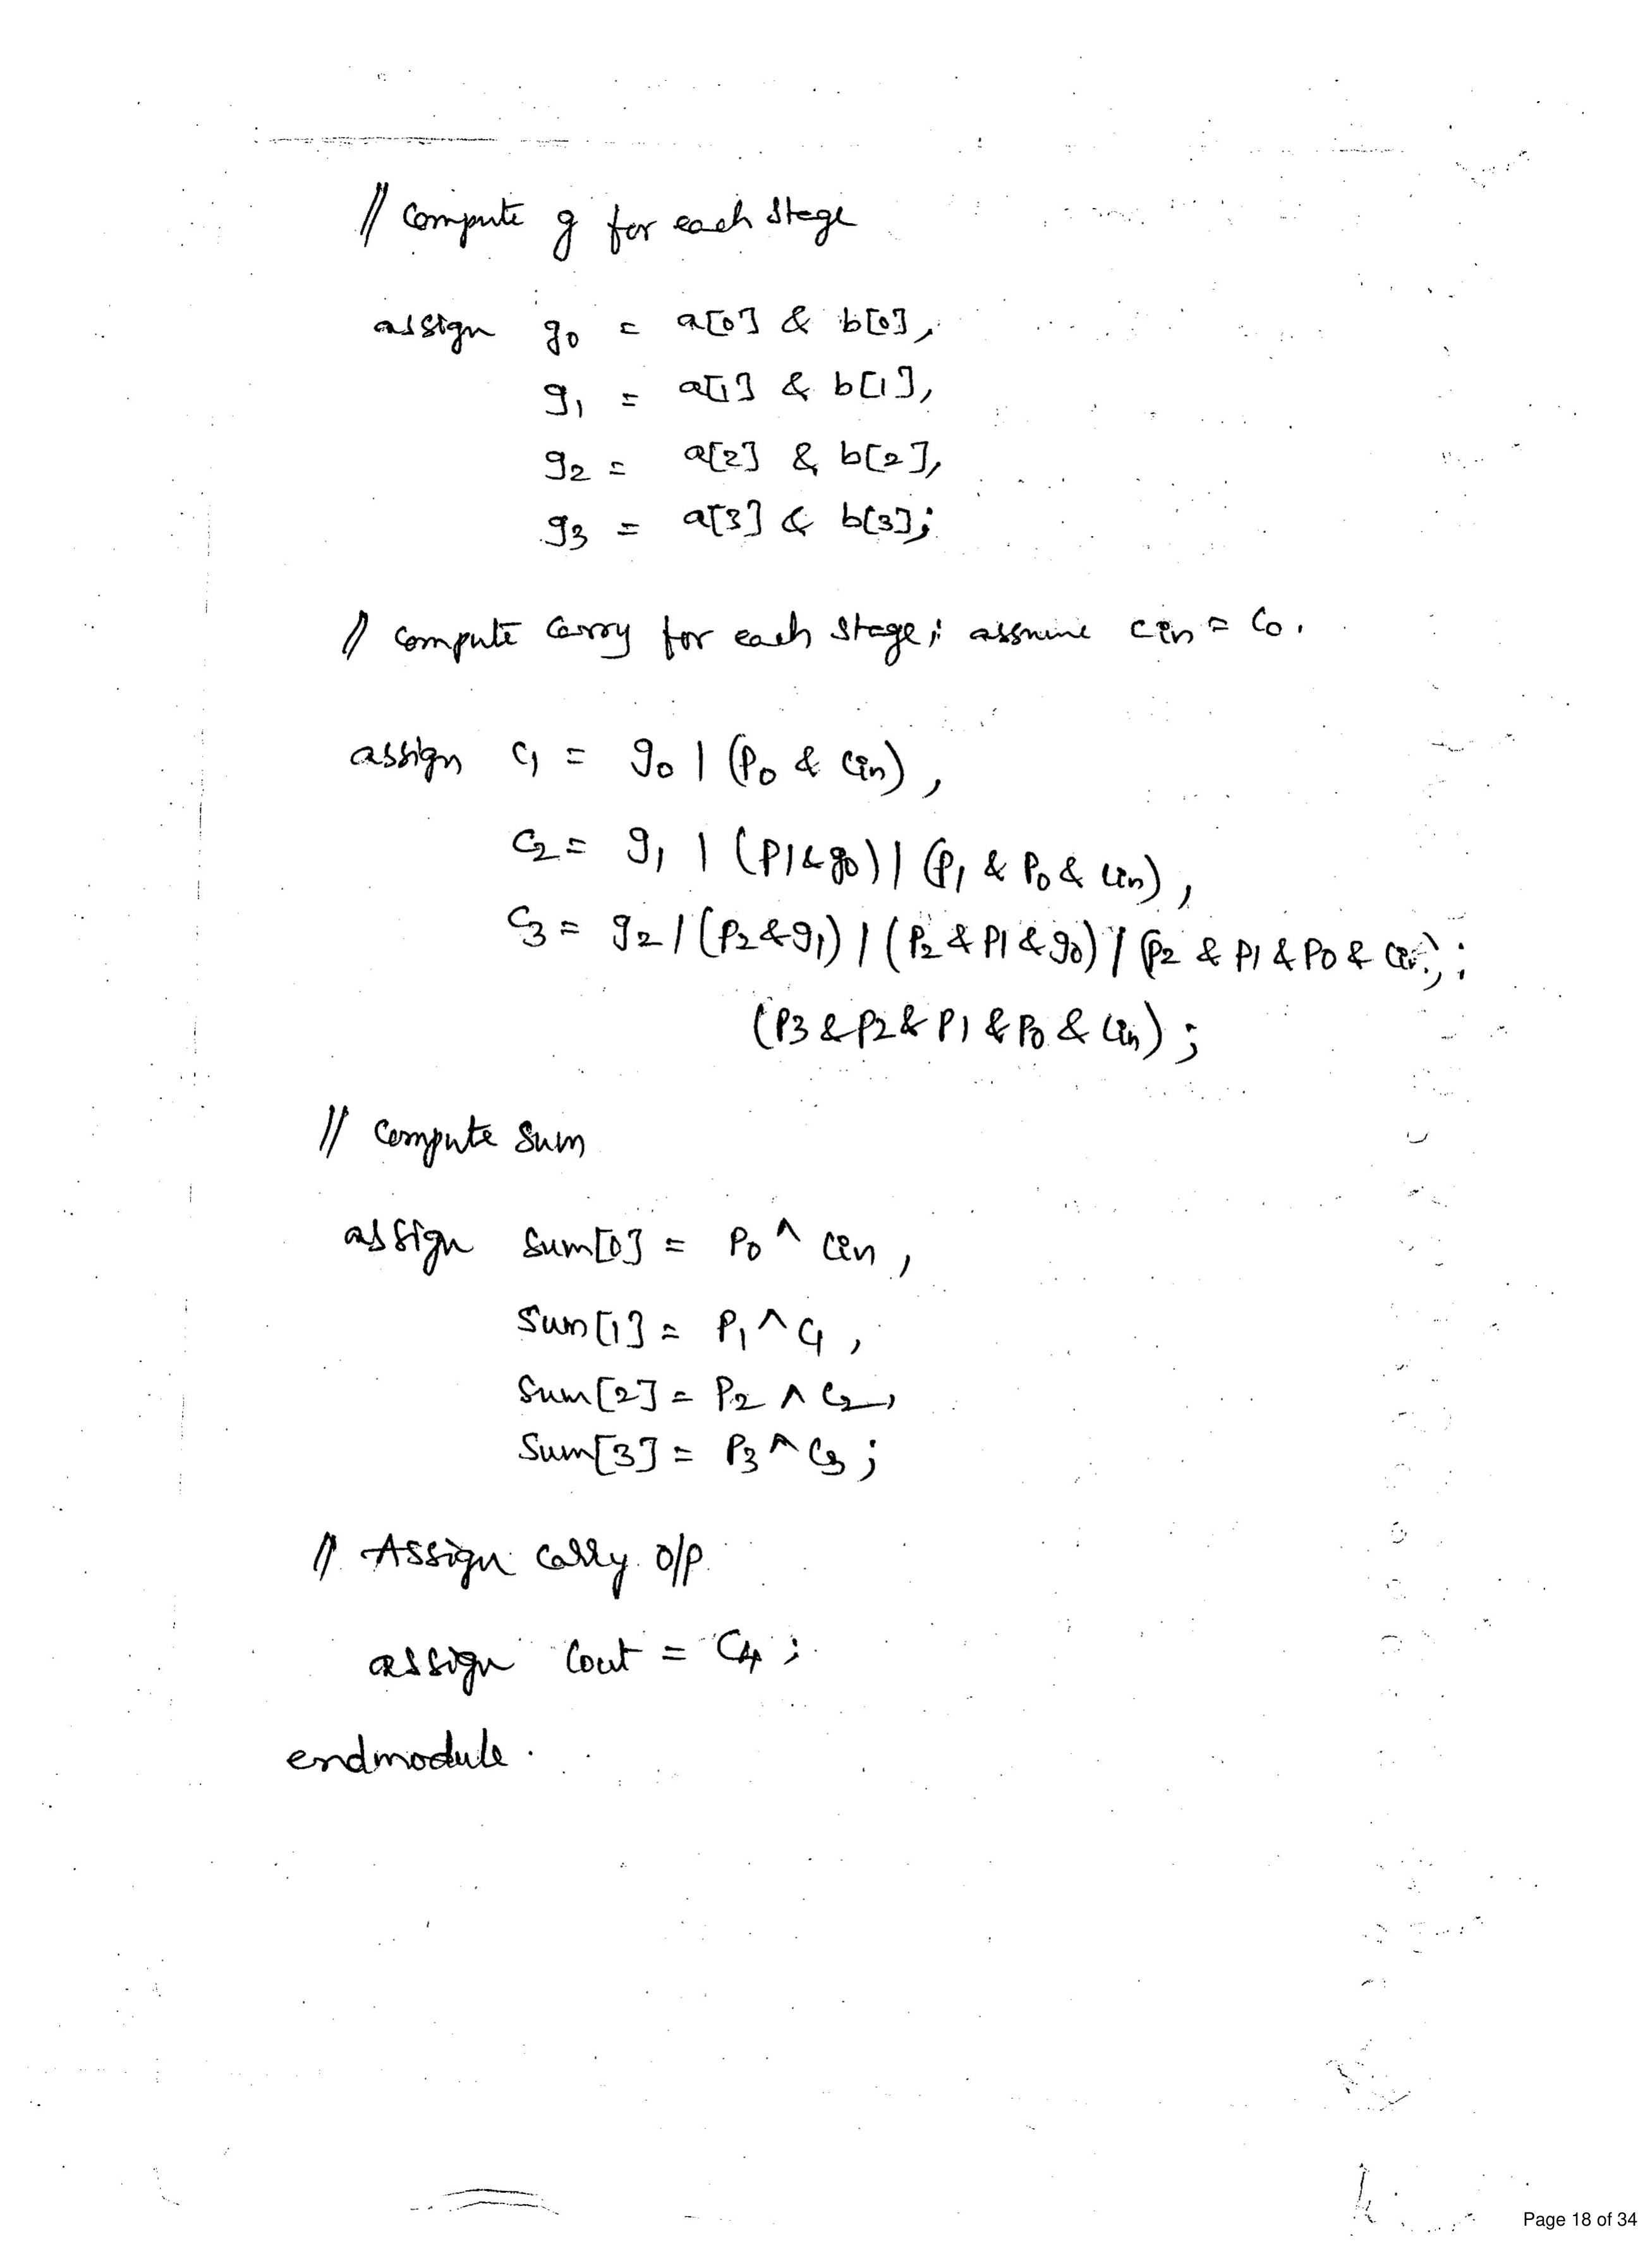 // compute g for each stage
assign g0 = a[0] & b[0],
g1 = a[1] & b[1],
g2 = a[2] & b[2],
g3 = a[3] & b[3];
// compute carry for each stage; assume cin = c0.
assign c1 = g0 | (P0 & cin),
c2 = g1 | (P1 & g0) | (P1 & P0 & cin),
c3 = g2 | (P2 & g1) | (P2 & P1 & g0) | (P2 & P1 & P0 & cin);
(P3 & P2 & P1 & P0 & cin);
// compute sum
assign sum[0] = P0 ^ cin,
sum[1] = P1 ^ c1,
sum[2] = P2 ^ c2,
sum[3] = P3 ^ c3;
// Assign carry o/p
assign cout = c4;
endmodule.
Page 18 of 34